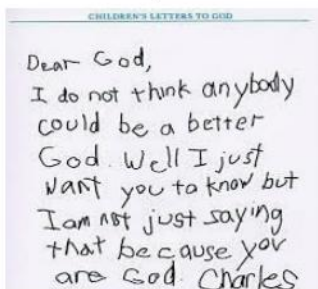 CHILDREN'S LETTERS TO GOD
Dear God,
I do not think anybody
could be a better
God. Well I just
want you to know but
I am not just saying
that because you
are God. Charles